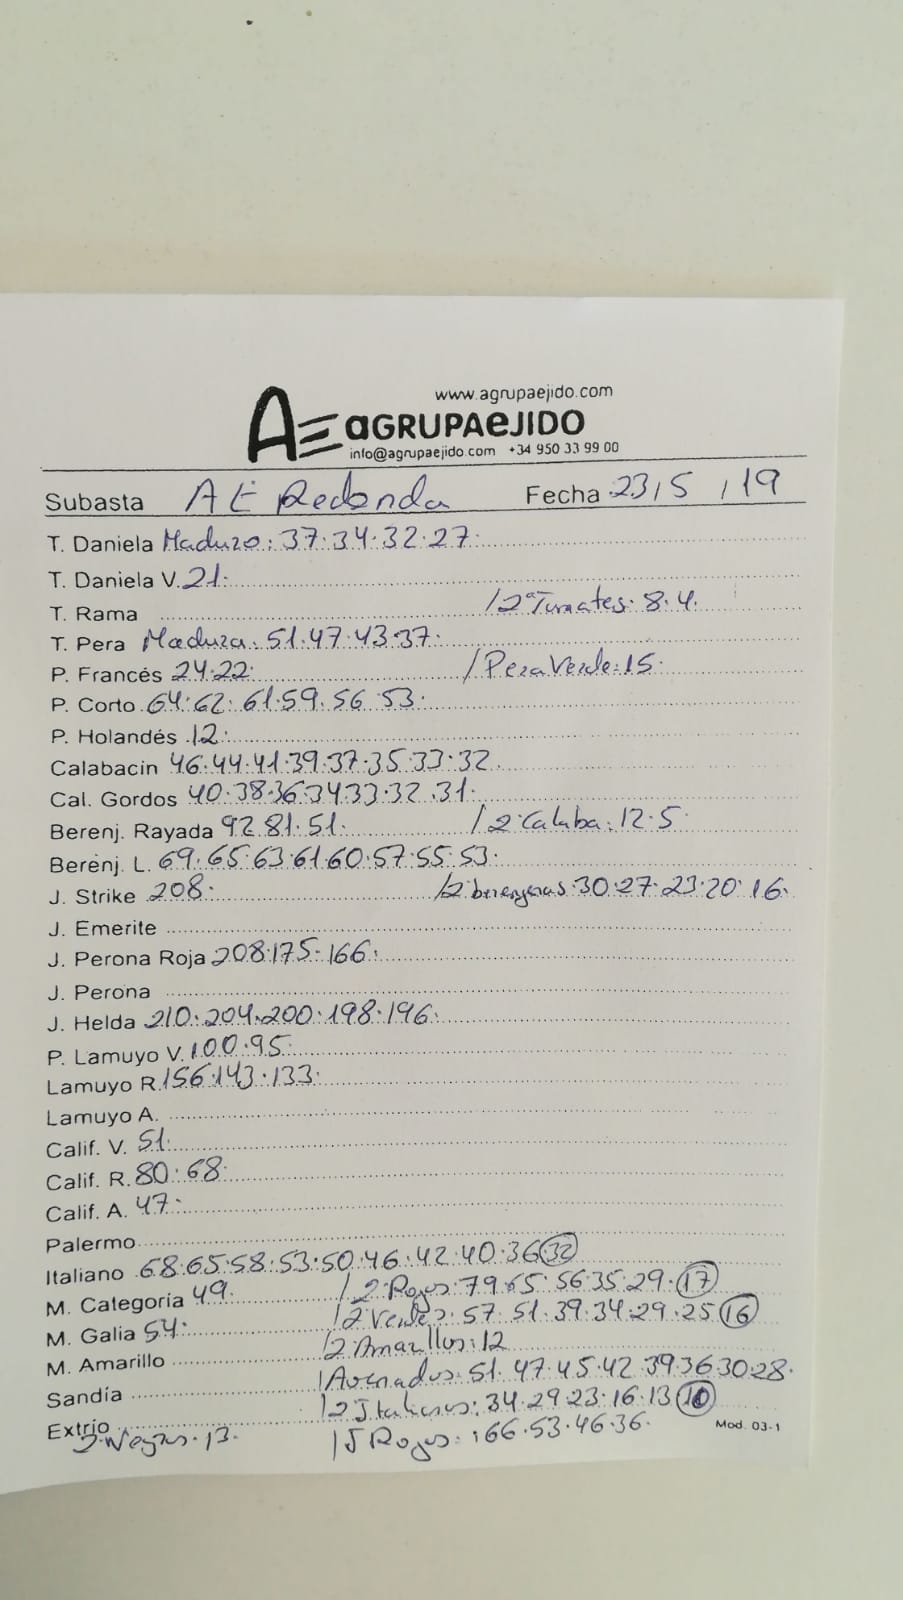 www.agrupaejido.com
AE aGRUPAeJIDO
info@agrupaejido.com +34 950 33 99 00
Subasta AE Redonda Fecha 23/5/19
T. Daniela Maduro: 37.34.32.27.
T. Daniela V. 21.
T. Rama /2ª Tomates: 8.4.
T. Pera Madura: 51.47.43.37.
P. Francés 24.22. /Pera Verde: 15.
P. Corto 64.62.61.59.56.53.
P. Holandés 12.
Calabacín 46.44.41.39.37.35.33.32.
Cal. Gordos 40.38.36.34.33.32.31.
Berenj. Rayada 92.81.51. /2ª Calaba: 12.5.
Berenj. L. 69.65.63.61.60.57.55.53.
J. Strike 208. /2ª berenjenas: 30.27.23.20.16.
J. Emerite
J. Perona Roja 208.175.166.
J. Perona
J. Helda 210.204.200.198.196.
P. Lamuyo V. 100.95.
Lamuyo R. 156.143.133.
Lamuyo A.
Calif. V. 51.
Calif. R. 80.68.
Calif. A. 47.
Palermo
Italiano 68.65.58.53.50.46.42.40.36.32
M. Categoría 49. /2ª Rojos: 79.65.56.35.29.17
M. Galia 54. /2ª Verdes: 57.51.39.34.29.25.16
M. Amarillo /2ª Amarillos: 12
Sandía /Asurcados: 51.47.45.42.39.36.30.28.
Extrio /2ª Italianos: 34.29.23.16.13.10
J. Negras: 13. /J Rojos: 166.53.46.36.
Mod. 03-1